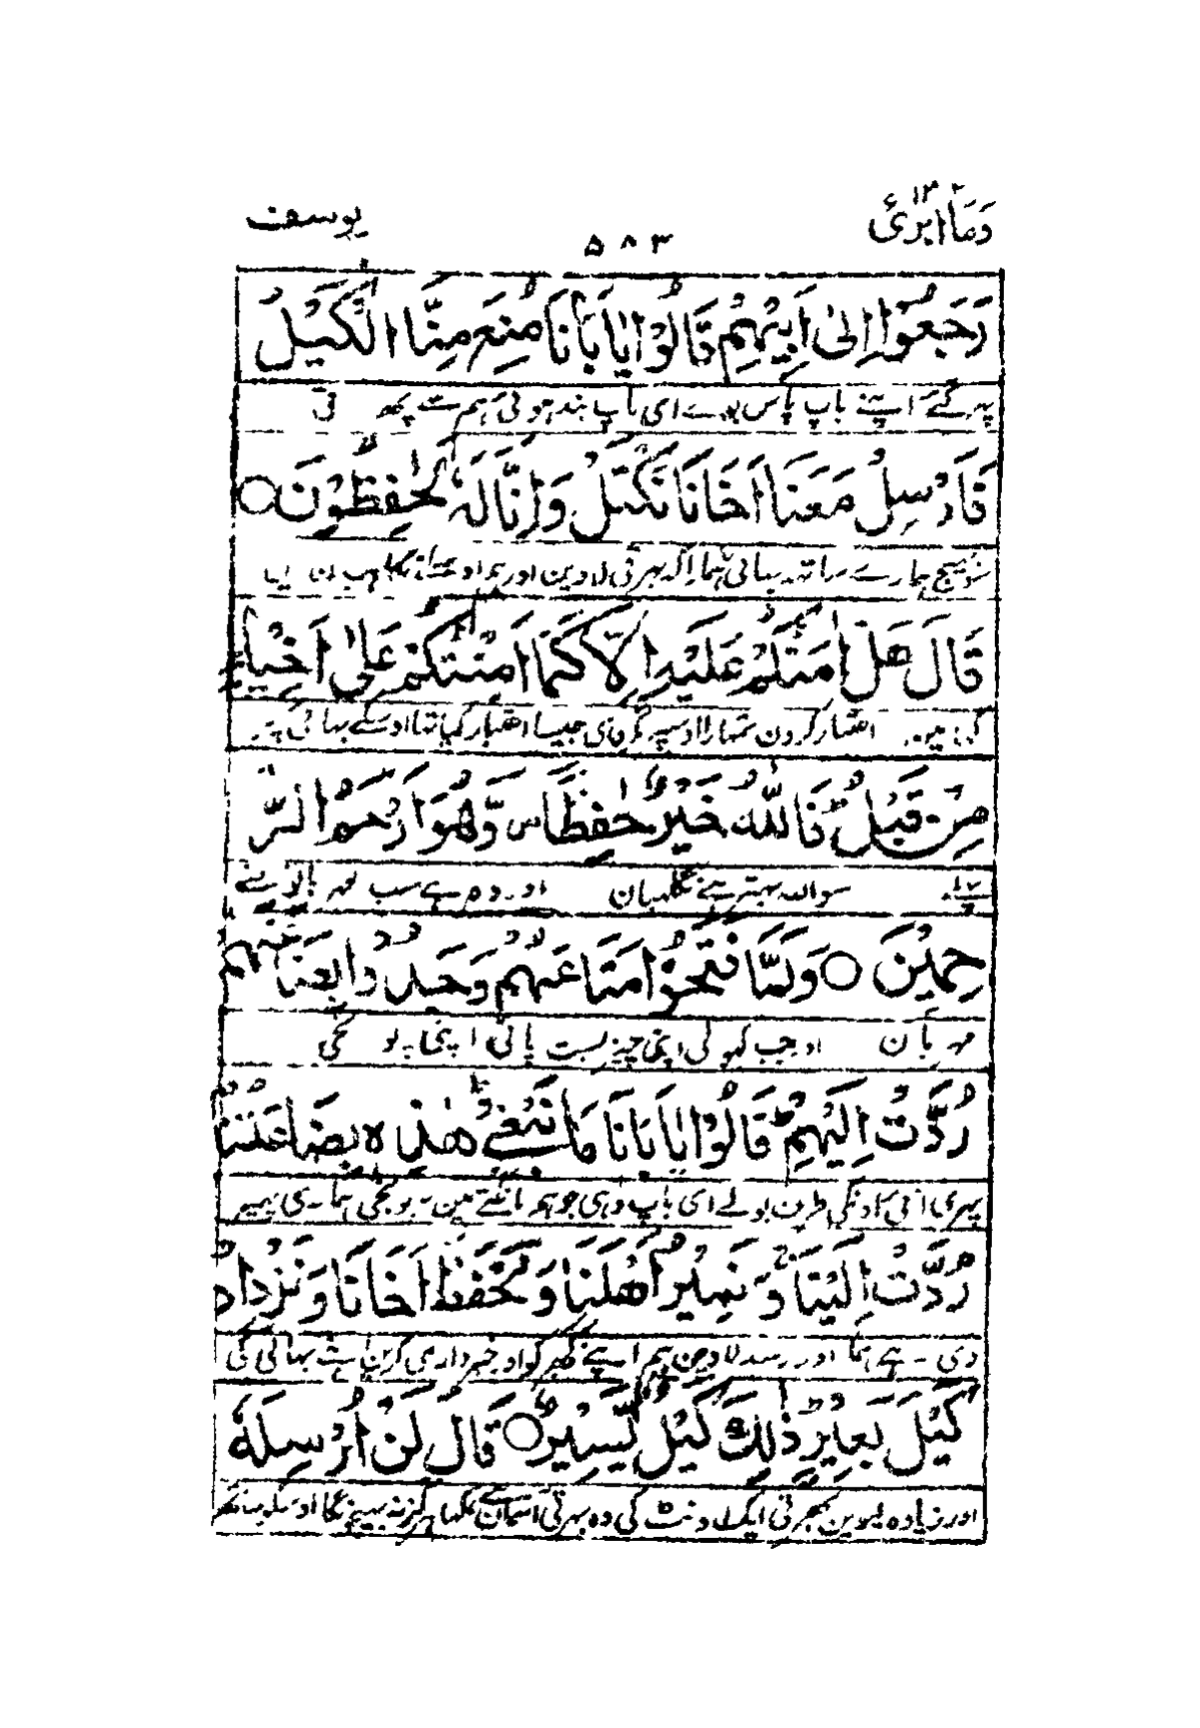 وما ابرئ ١٣
٥٨٣
يوسف
رَجَعُوْۤا اِلٰۤى اَبِيْهِمْ قَالُوْا يٰۤاَبَانَا مُنِعَ مِنَّا الْكَيْلُ
پھر گئے اپنے باپ پاس بولے ای باپ بند ہوئی ہم سے
فَاَرْسِلْ مَعَنَاۤ اَخَانَا نَكْتَلْ وَاِنَّا لَهٗ لَحٰفِظُوْنَ ○
سو بھیج ہمارے ساتھ بھائی ہمارا کہ بھرتی لاوین اور ہم اوسکے
قَالَ هَلْ اٰمَنُكُمْ عَلَيْهِ اِلَّا كَمَاۤ اَمِنْتُكُمْ عَلٰۤى اَخِيْهِ
اعتبار کرون تمہارا اوسپر مگر وہی جیسا اعتبار کیا تھا اوسکے بھائی پر
مِنْ قَبْلُ فَاللّٰهُ خَيْرٌ حٰفِظًا وَّهُوَ اَرْحَمُ الرّٰ
سو الله بہتر ہے نگہبان اور وہ ہے سب
حِمِيْنَ ○ وَلَمَّا فَتَحُوْا مَتَاعَهُمْ وَجَدُوْا بِضَاعَتَهُمْ
مہربان اور جب کھولی اپنی چیز بست پائی اپنی پونجی
رُدَّتْ اِلَيْهِمْ قَالُوْا يٰۤاَبَانَا مَا نَبْغِيْ هٰذِهٖ بِضَاعَتُنَا
پھری آئی اونکی طرف بولے ای باپ وہی جو ہم مانگتے ہین یہ پونجی ہماری پھیر
رُدَّتْ اِلَيْنَا وَنَمِيْرُ اَهْلَنَا وَنَحْفَظُ اَخَانَا وَنَزْدَادُ
دی ہے ہمکو اور رسد لاوین ہم اپنے گھر کو اور خبرداری کرین اپنے بھائی کی
كَيْلَ بَعِيْرٍ ذٰلِكَ كَيْلٌ يَّسِيْرٌ ○ قَالَ لَنْ اُرْسِلَهٗ
اور زیادہ لیوین بھرتی ایک اونٹ کی وہ بھرتی آسان ہے کہا ہرگز نہ بھیجونگا اوسکو ساتھ